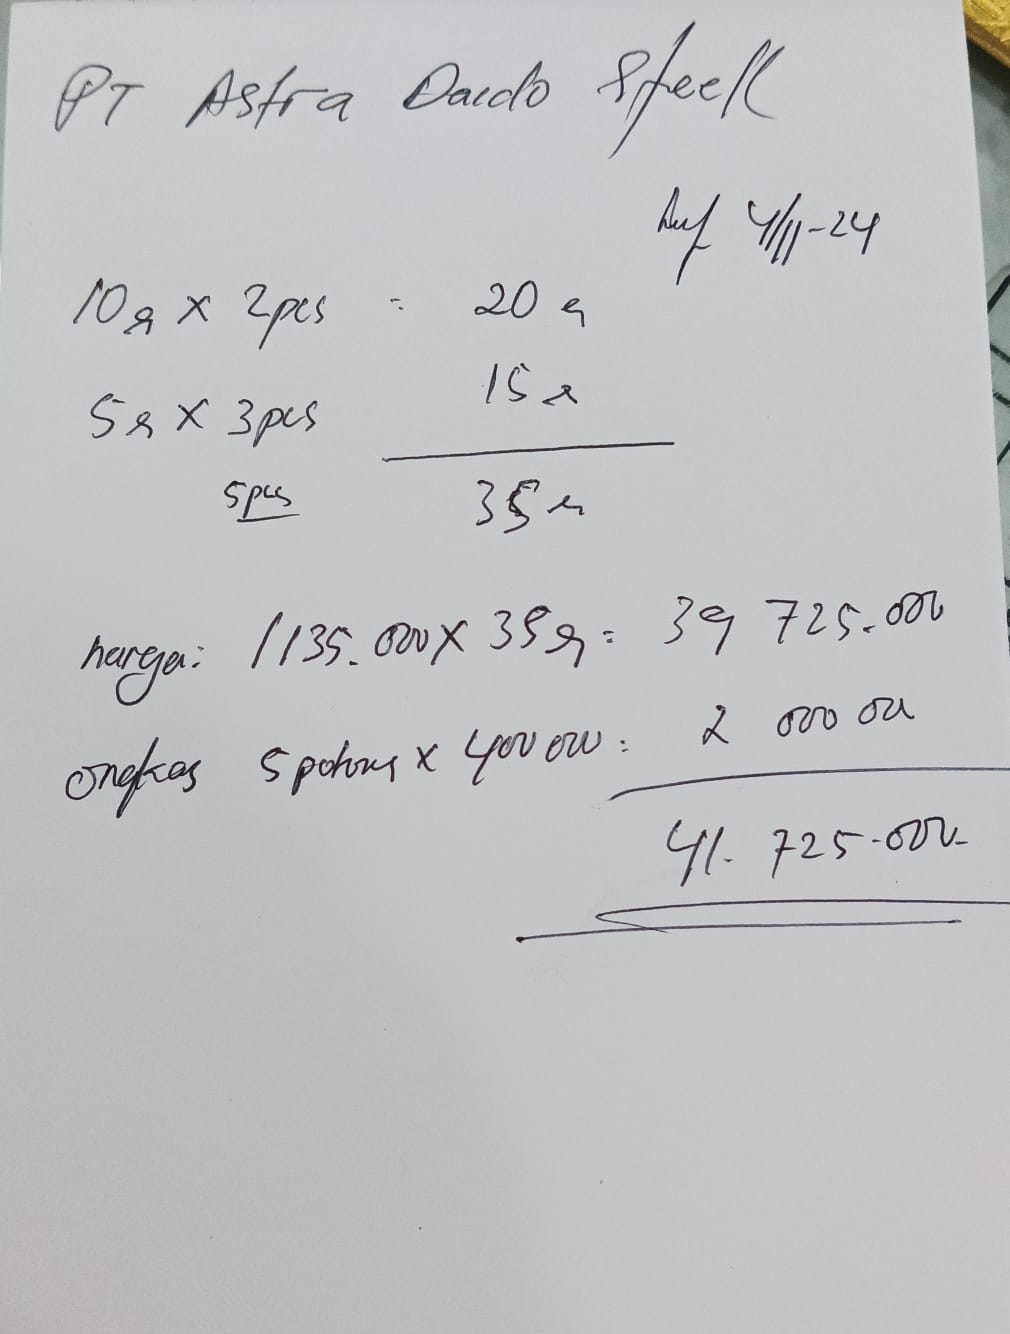 PT Astra Daido Steell
4/11-24
10g x 2pcs = 20 g
5g x 3pcs 15 g
5pcs 35 g
harga: 1135.000 x 35g = 39 725.000
ongkas 5 potong x 400 000 = 2 000 000
41. 725-000-